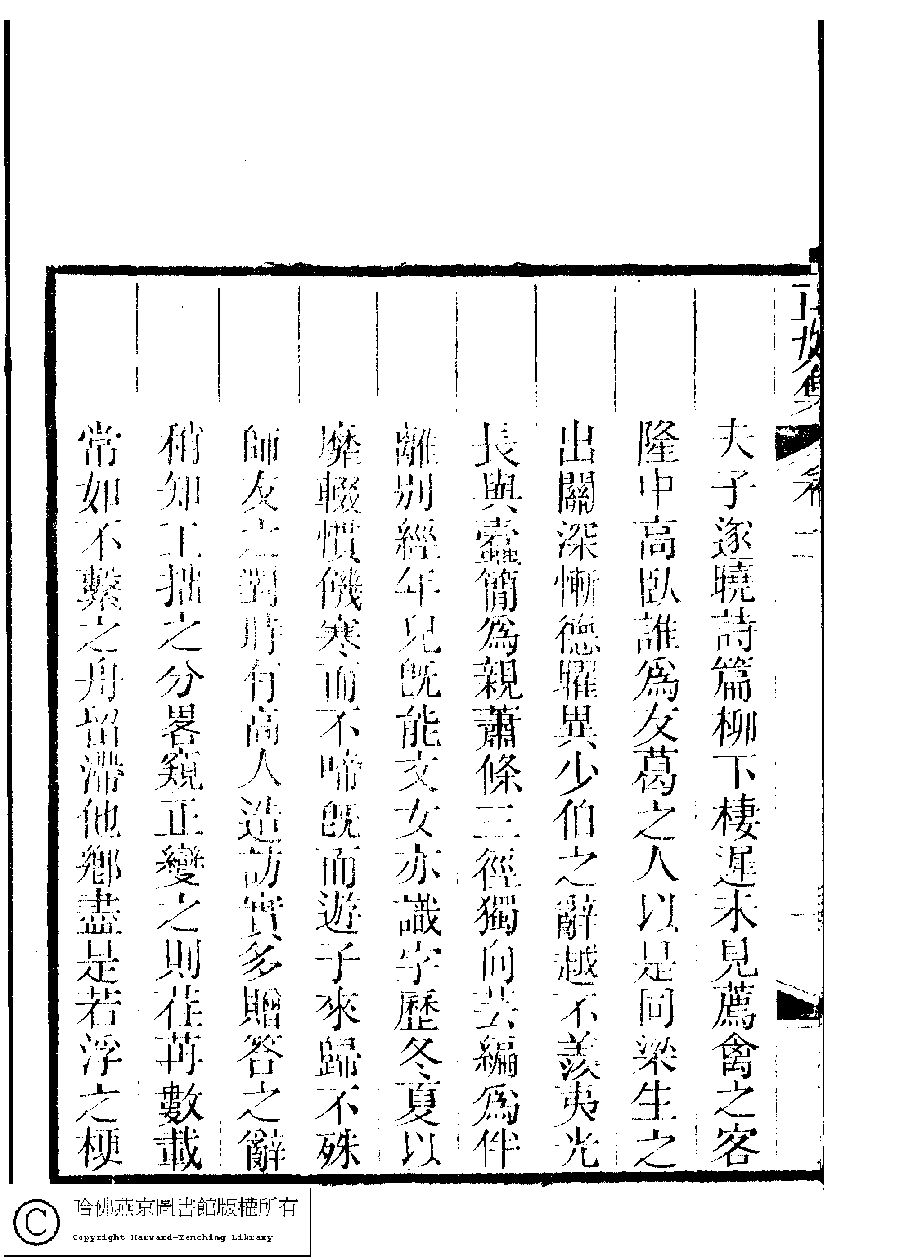 夫子逐曉詩篇柳下棲遲未見薦禽之客
隆中高臥誰爲友葛之人以是同梁生之
出關深慚德耀異少伯之辭越不羨夷光
長與蠹簡爲親蕭條三徑獨向芸編爲伴
離别經年兒旣能文女亦識字歷冬夏以
靡輟慣饑寒而不啼旣而遊子來歸不殊
師友之對時有高人造訪實多贈答之辭
稍知工拙之分畧窺正變之則荏苒數載
常如不繫之舟留滯他鄉盡是若浮之梗
哈佛燕京圖書館版權所有
Copyright Harvard-Yenching Library